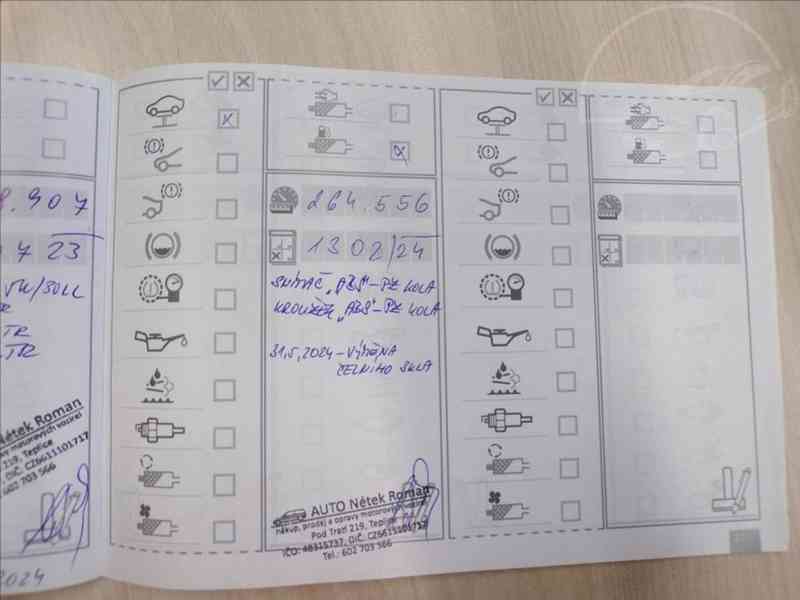 .907
7 23
TR
TR
Nétek Roman
219, Teplice
DIČ. CZ6611101717
602 703 566
2024
264.556
13 02/24
SNÍMAČ „ABS" - PZ KOLA
KROUŽEK „ABS" - PZ KOLA
31.5.2024 - VÝMĚNA
ČELNÍHO SKLA
AUTO Nétek Roman
nákup, prodej a opravy motorových vozidel
Pod Tratí 219, Teplice
IČO: 48315737, DIČ. CZ6611101717
Tel.: 602 703 566